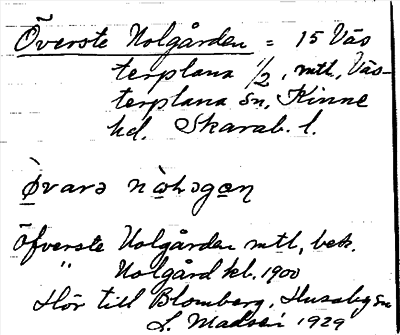 Överste Holgården = 15 Väs
terplana 1/2, mtl, Väs-
terplana sn, Kinne
hd. Skarab. l.
ø̀varə nɷ̀həgaɳ
Öfverste Holgården mtl, bet.
" Holgård kb. 1900
Hör till Blomberg, Husaby sn
L. 1929